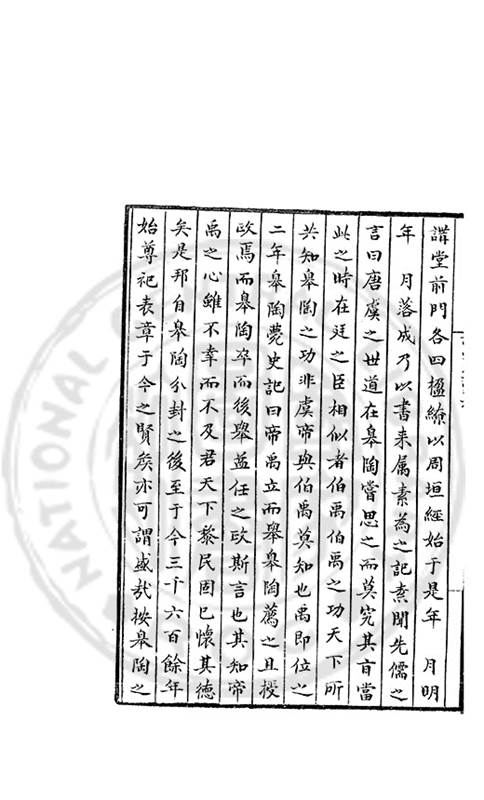 講堂前門各四楹繚以周垣經始于是年　月明
年　月落成乃以書来属素為之記素聞先儒之
言曰唐虞之世道在皋陶嘗思之而莫究其旨當
此之時在廷之臣相似者伯禹伯禹之功天下所
共知皋陶之功非虞帝與伯禹莫知也禹即位之
二年皋陶薨史記曰帝禹立而舉皋陶薦之且授
政焉而皋陶卒而後舉益任之政斯言也其知帝
禹之心雖不幸而不及君天下黎民固已懷其德
矣是邦自皋陶分封之後至于今三千六百餘年
始尊祀表章于今之賢矦亦可謂盛哉按皋陶之
NATIONAL